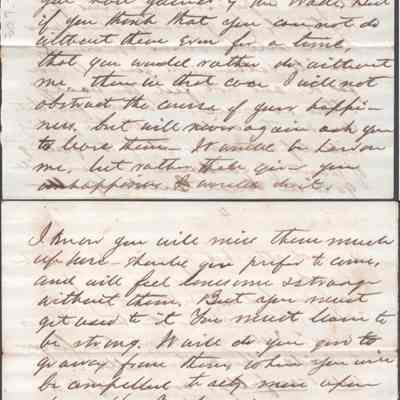 if you think that you can not do
without them even for a time,
that you would rather do without
me, then in that case I will not
obstruct the course of your happi-
ness, but will never again ask you
to leave them— It would be hard on
me, but rather than give you
unhappiness I would do it.
I know you will miss them much
up here— should you prefer to come,
and will feel lonesome & strange
without them. But you must
get used to it You must learn to
be strong. It will do you good to
go away from them, when you will
be compelled to rely more upon